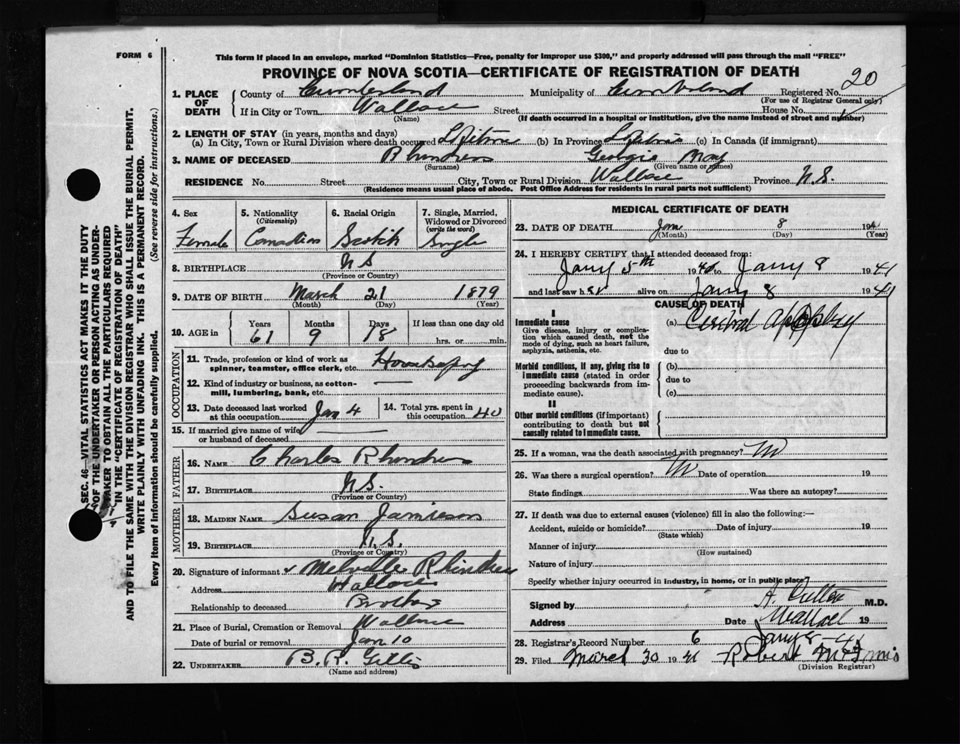 FORM 6
This form if placed in an envelope, marked "Dominion Statistics—Free, penalty for improper use $300," and properly addressed will pass through the mail "FREE"
PROVINCE OF NOVA SCOTIA—CERTIFICATE OF REGISTRATION OF DEATH
20
1. PLACE OF DEATH County of Cumberland Municipality of Cumberland Registered No.
(For use of Registrar General only)
If in City or Town Wallace Street House No.
(Name) (If death occurred in a hospital or institution, give the name instead of street and number)
2. LENGTH OF STAY (in years, months and days)
(a) In City, Town or Rural Division where death occurred Lifetime (b) In Province Lifetime (c) In Canada (if immigrant)
3. NAME OF DECEASED Rhindress Georgie May
(Surname) (Given name or names)
RESIDENCE No. Street City, Town or Rural Division Wallace Province N.S.
(Residence means usual place of abode. Post Office Address for residents in rural parts not sufficient)
4. Sex 5. Nationality 6. Racial Origin 7. Single, Married, Widowed or Divorced
(Citizenship) (write the word)
Female Canadian Scotch Single
8. BIRTHPLACE N S
(Province or Country)
9. DATE OF BIRTH March 21 1879
(Month) (Day) (Year)
10. AGE in Years Months Days If less than one day old
61 9 18 hrs. or min.
OCCUPATION
11. Trade, profession or kind of work as spinner, teamster, office clerk, etc.
12. Kind of industry or business, as cotton-mill, lumbering, bank, etc.
13. Date deceased last worked at this occupation Jan 4 14. Total yrs. spent in this occupation 40
15. If married give name of wife or husband of deceased
FATHER
16. NAME Charles Rhindress
17. BIRTHPLACE N.S.
(Province or Country)
MOTHER
18. MAIDEN NAME Susan Jamieson
19. BIRTHPLACE N.S.
(Province or Country)
20. Signature of informant Melville Rhindress
Address Wallace
Relationship to deceased Brother
21. Place of Burial, Cremation or Removal Wallace
Date of burial or removal Jan 10
22. UNDERTAKER B. R. Gillis
(Name and address)
MEDICAL CERTIFICATE OF DEATH
23. DATE OF DEATH Jan 8 194
(Month) (Day) (Year)
24. I HEREBY CERTIFY that I attended deceased from:
Janry 5th 19 to Janry 8 1941
and last saw h er alive on Janry 8 1941
CAUSE OF DEATH
I
Immediate cause
Give disease, injury or complication which caused death, not the mode of dying, such as heart failure, asphyxia, asthenia, etc.
(a)
due to
Morbid conditions, if any, giving rise to immediate cause (stated in order proceeding backwards from immediate cause).
(b)
due to
(c)
II
Other morbid conditions (if important) contributing to death but not causally related to immediate cause.
25. If a woman, was the death associated with pregnancy?
26. Was there a surgical operation? Date of operation 19
State findings Was there an autopsy?
27. If death was due to external causes (violence) fill in also the following:—
Accident, suicide or homicide? Date of injury 19
(State which)
Manner of injury
(How sustained)
Nature of injury
Specify whether injury occurred in industry, in home, or in public place?
Signed by M.D.
Address Wallace Date 19
28. Registrar's Record Number 6 Janry 8 - 41
29. Filed March 30 1941 Robert
(Division Registrar)
SEC. 46—VITAL STATISTICS ACT MAKES IT THE DUTY
OF THE UNDERTAKER OR PERSON ACTING AS UNDER-
TAKER TO OBTAIN ALL THE PARTICULARS REQUIRED
IN THE "CERTIFICATE OF REGISTRATION OF DEATH"
AND TO FILE THE SAME WITH THE DIVISION REGISTRAR WHO SHALL ISSUE THE BURIAL PERMIT.
WRITE PLAINLY WITH UNFADING INK. THIS IS A PERMANENT RECORD.
Every item of information should be carefully supplied. (See reverse side for instructions.)